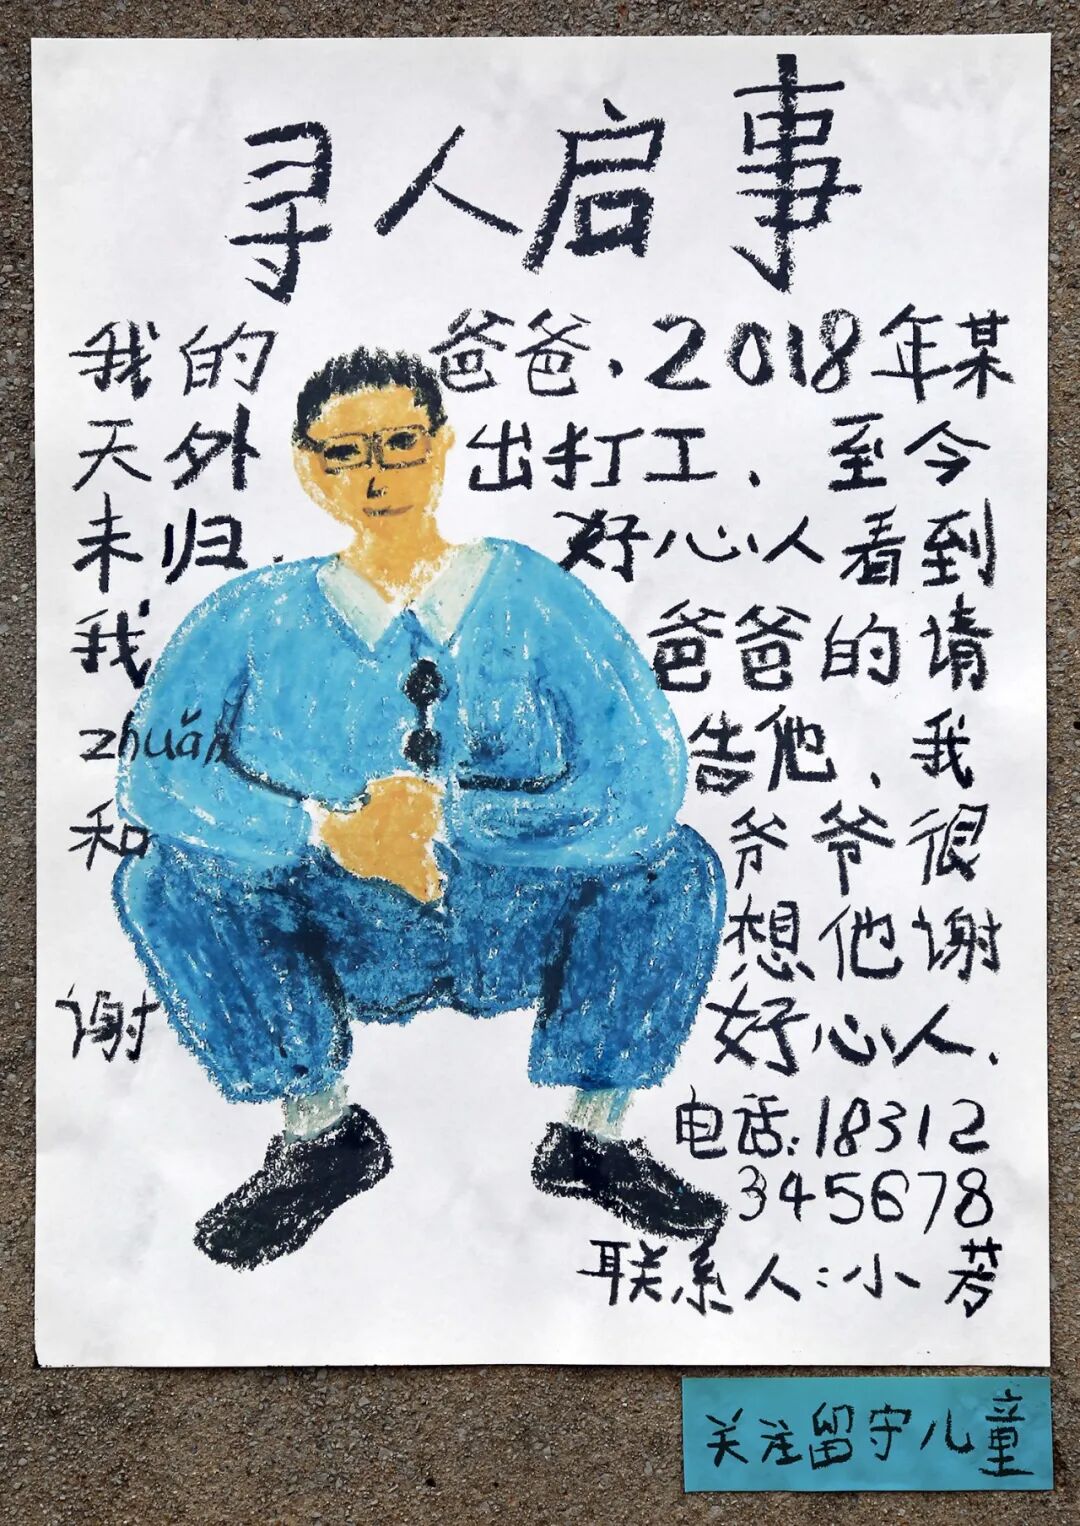 寻人启事
我的爸爸.2018年某
天外出打工.至今
未归.好心人看到
我爸爸的请
zhuǎn告他、我
和爷爷很
想他谢
谢好心人.
电话:18312
345678
联系人:小芳
关注留守儿童